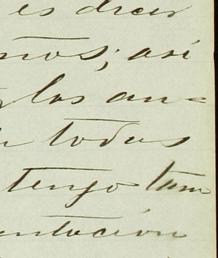 es decir
mos; así
los an=
todas
tengo tam
entación